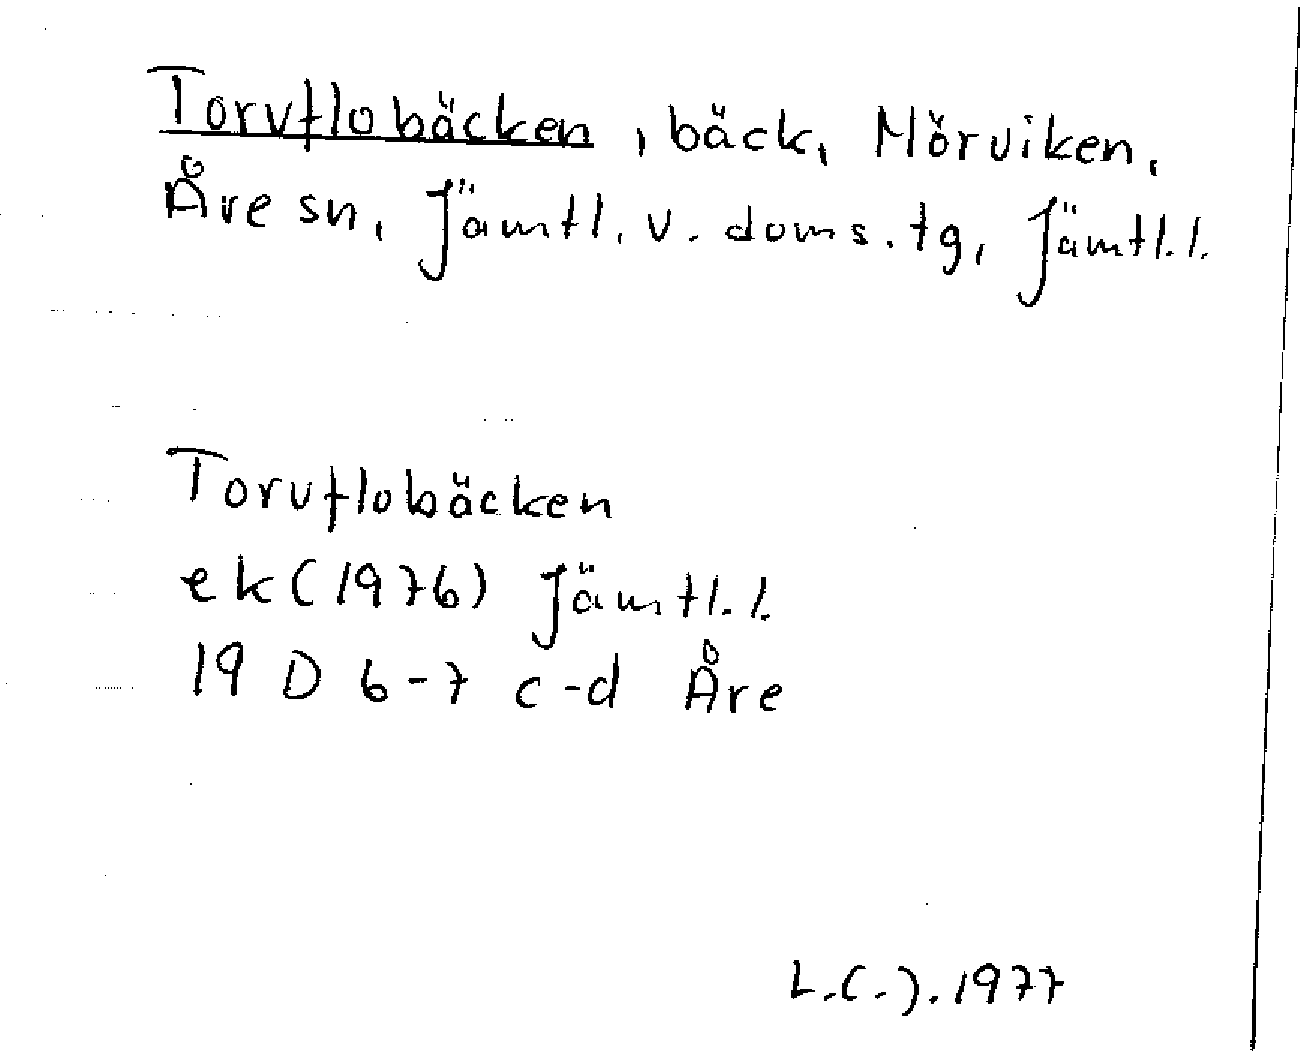 Torvflobäcken, bäck, Mörviken,
Åre sn, Jämtl. v. doms. tg, Jämtl. l.
Torvflobäcken
ek (1976) Jämtl. l.
19 D 6-7 c-d Åre
L.C.J. 1977